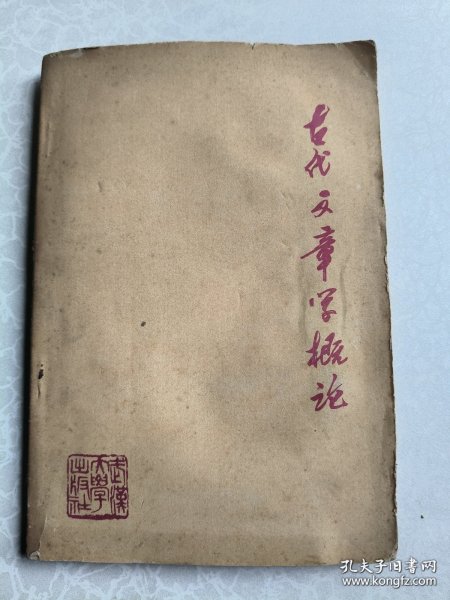 古代文章学概论
武汉
大学
出版社
孔夫子旧书网
www.kongfz.com